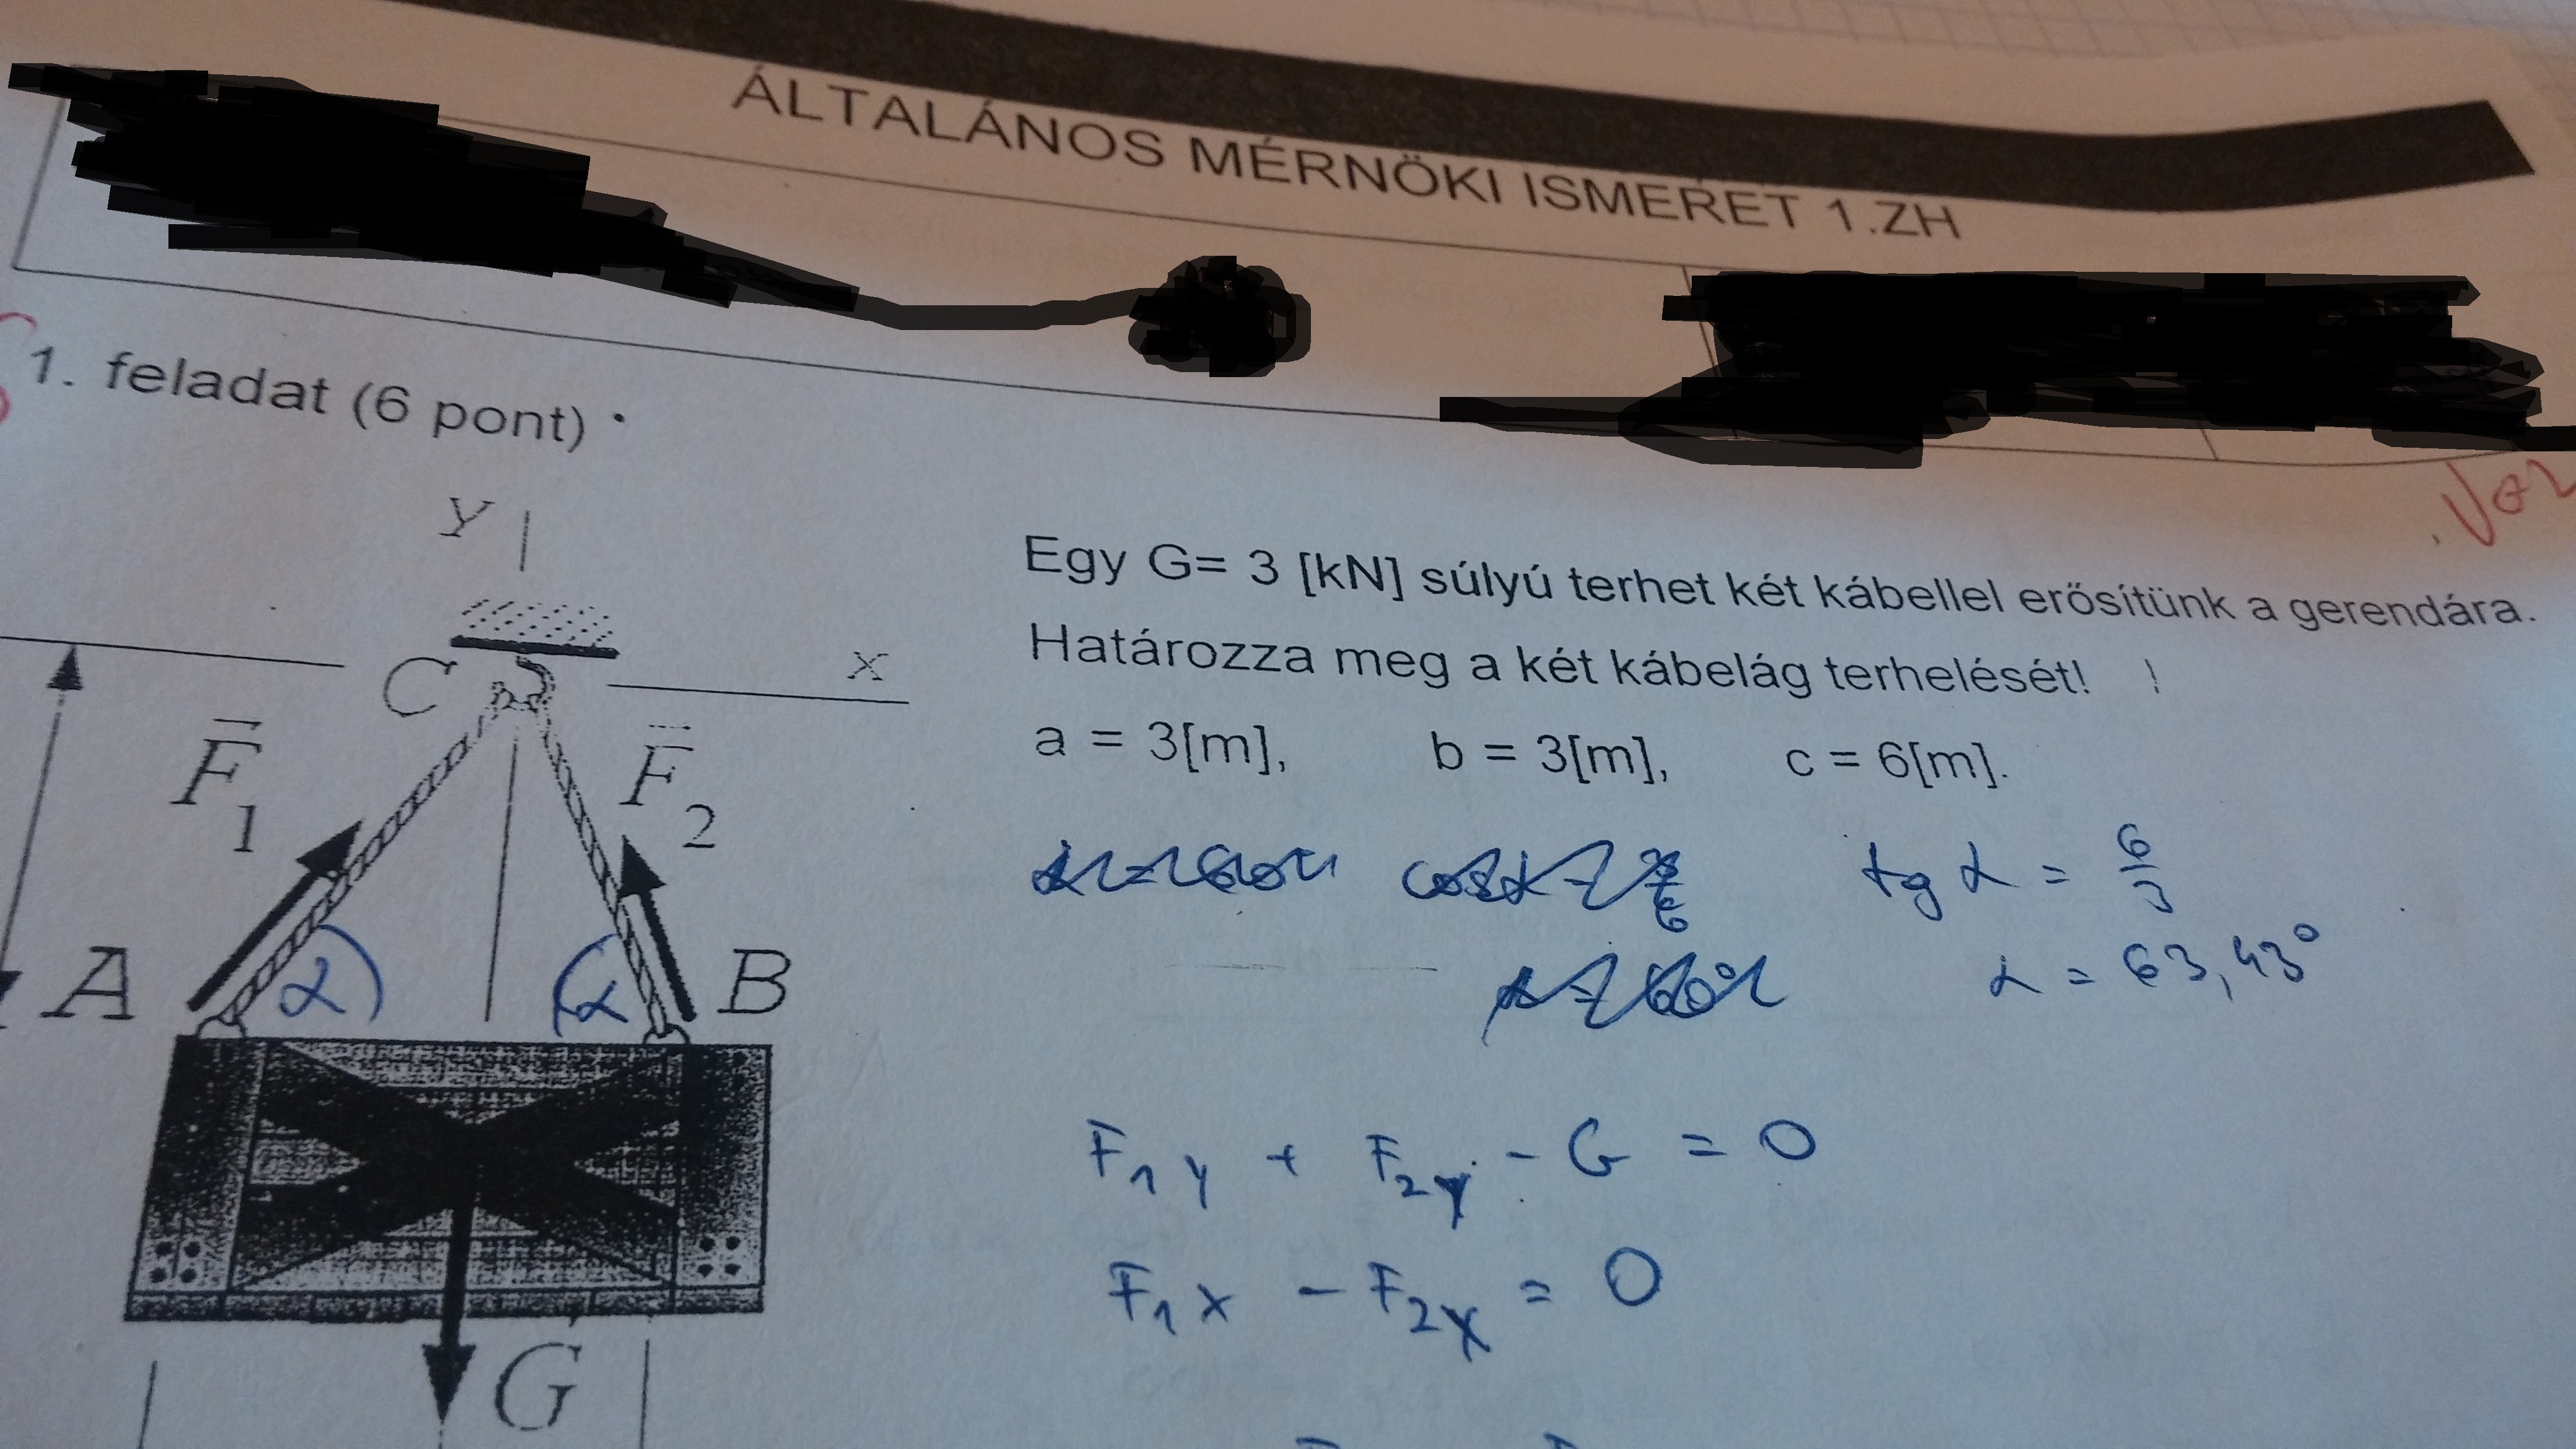 ÁLTALÁNOS MÉRNÖKI ISMERET 1.ZH
1. feladat (6 pont)
Egy G= 3 [kN] súlyú terhet két kábellel erősítünk a gerendára.
Határozza meg a két kábelág terhelését!
a = 3[m], b = 3[m], c = 6[m].
y
x
C
F̄1
F̄2
A
α
α
B
G
tg α = 6/3
α = 63,43°
F1y + F2y - G = 0
F1x - F2x = 0